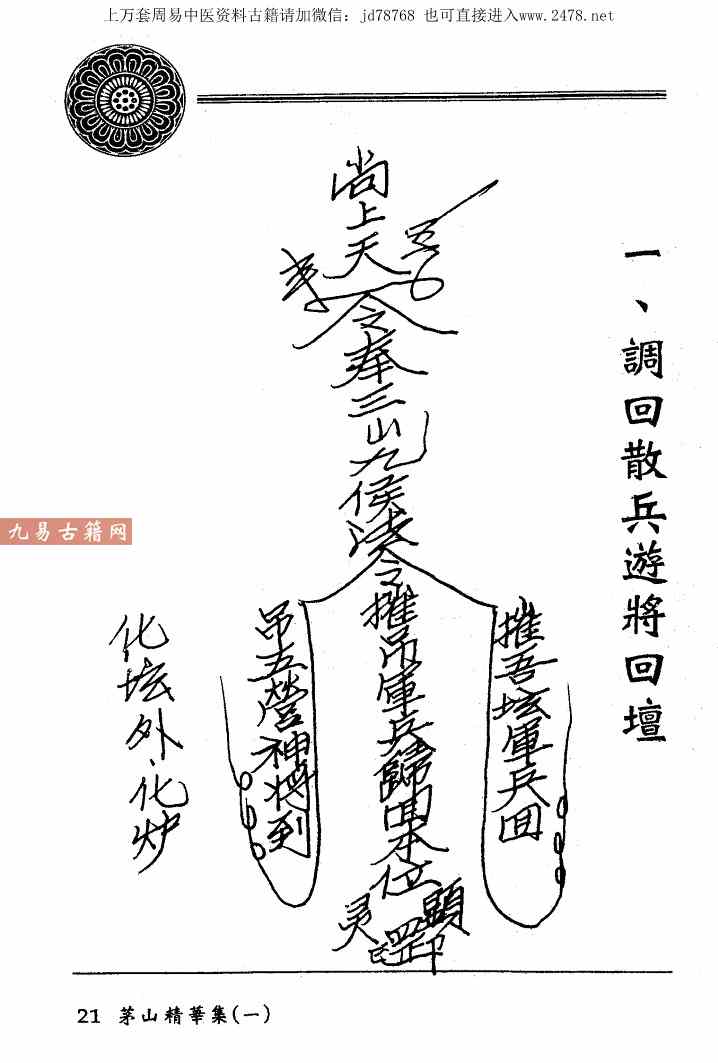 上万套周易中医资料古籍请加微信：jd78768 也可直接进入www.2478.net
一、調回散兵遊將回壇
尚上天
令奉三山九侯
摧吊軍兵歸回本位
摧吾坛軍兵回
吊五營神將到
顕
灵
罡印
化坛外、化炉
九易古籍网
21 茅山精華集(一)